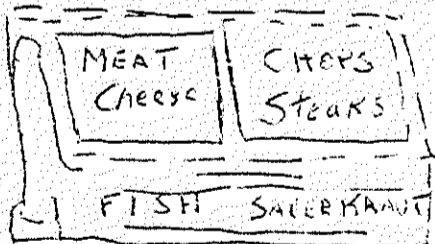 MEAT
Cheese
CHOPS
STEAKS
FISH SAUERKRAUT